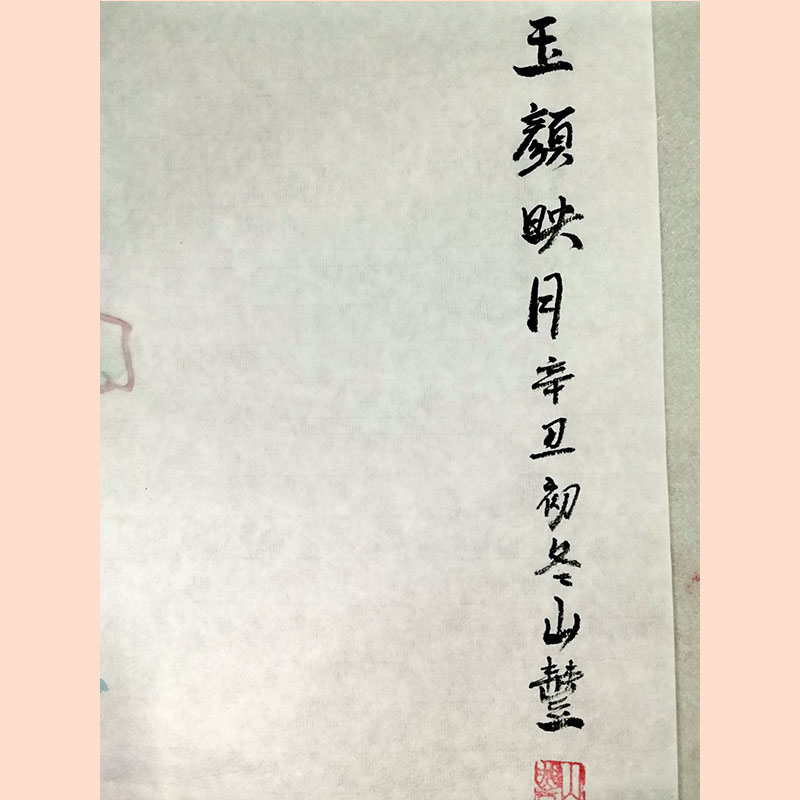 玉顏映月辛丑初冬山豐